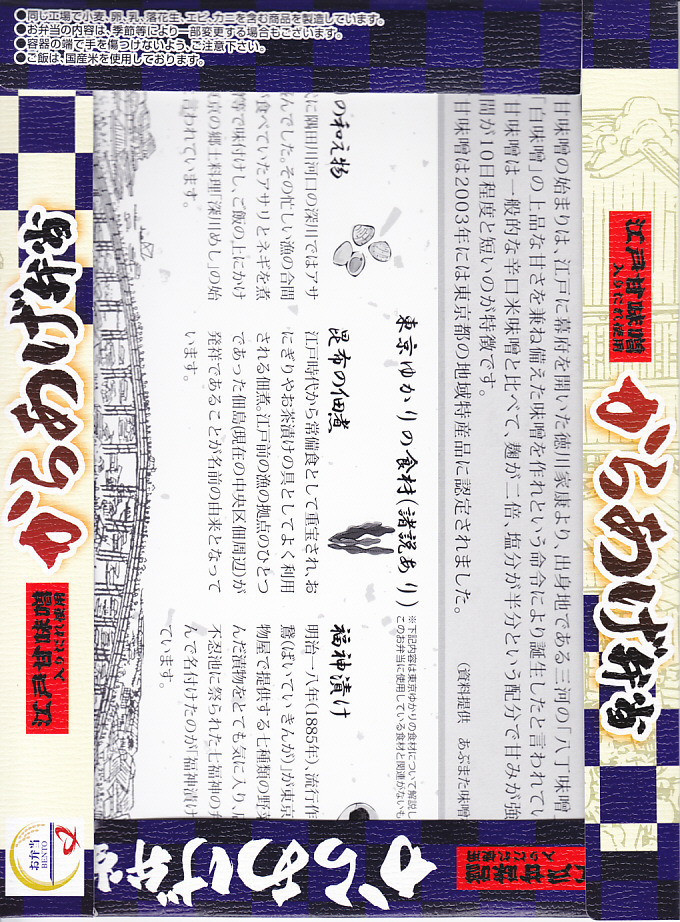 ●同じ工場で小麦、卵、乳、落花生、エビ、カニを含む商品を製造しています。
●お弁当の内容は、季節等により一部変更する場合もございます。
●容器の端で手を傷つけないよう、ご注意下さい。
●ご飯は、国産米を使用しております。
甘味噌の始まりは、江戸に幕府を開いた徳川家康より、出身地である三河の「八丁味噌
「白味噌」の上品な甘さを兼ね備えた味噌を作れという命令により誕生したと言われてい
甘味噌は一般的な辛口米味噌と比べて、麹が二倍、塩分が半分という配分で甘みが強
間が10日程度と短いのが特徴です。
甘味噌は2003年には東京都の地域特産品に認定されました。
(資料提供 あぶまた味噌
東京ゆかりの食材(諸説あり)
※下記内容は東京ゆかりの食材について解説し
このお弁当に使用している食材と関連がないも
の和え物
に隅田川河口の深川ではアサ
んでした。その忙しい漁の合間
食べていたアサリとネギを煮
等で味付けし、ご飯の上にかけ
京の郷土料理「深川めし」の始
言われています。
昆布の佃煮
江戸時代から常備食として重宝され、お
にぎりやお茶漬けの具としてよく利用
される佃煮。江戸前の漁の拠点のひとつ
であった佃島(現在の中央区佃周辺)が
発祥であることが名前の由来となって
います。
福神漬け
明治一八年(1885年)、流行作
鶯(ばいてい きんが)」が東京
物屋で提供する七種類の野菜
んだ漬物をとても気に入り、
不忍池に祭られた七福神の
んで名付けたのが「福神漬け
ています。
からあげ弁当
江戸甘味噌
入りだれ使用
江戸甘味噌
入りだれ使用
からあげ弁当
からあげ弁当
江戸甘味噌
入りだれ使用
お弁当
BENTO